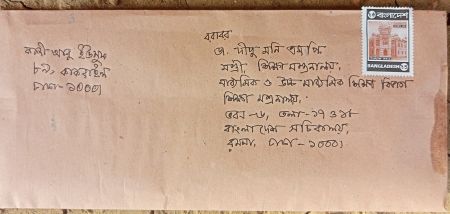 কাজী আবু ইউসুফ
৮৭, কাকরাইল
ঢাকা-১০০০।
বরাবর
ডা. দীপু মনি এমপি
মন্ত্রী, শিক্ষা মন্ত্রণালয়,
মাধ্যমিক ও উচ্চ-মাধ্যমিক শিক্ষা বিভাগ
শিক্ষা মন্ত্রণালয়,
ভবন-৬, তলা-১৭ ও ১৮
বাংলাদেশ সচিবালয়,
রমনা, ঢাকা-১০০০।
বাংলাদেশ
BANGLADESH